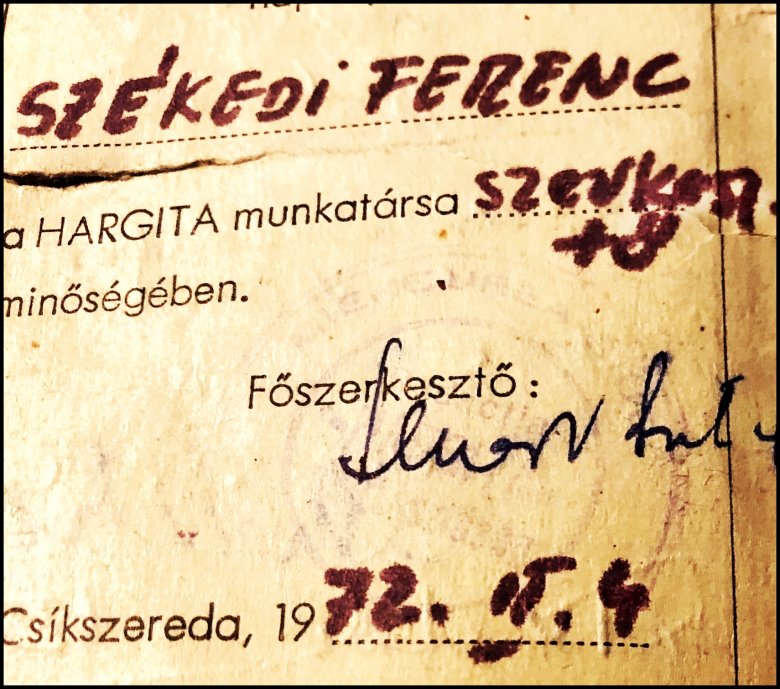 SZÉKEDI FERENC
a HARGITA munkatársa
minőségében.
Főszerkesztő:
Csíkszereda, 1972.